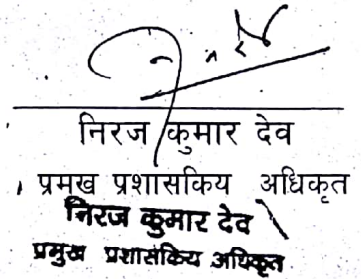 निरज कुमार देव
प्रमख प्रशासकिय अधिकृत
निरज कुमार देव
प्रमुख प्रशासकिय अधिकृत